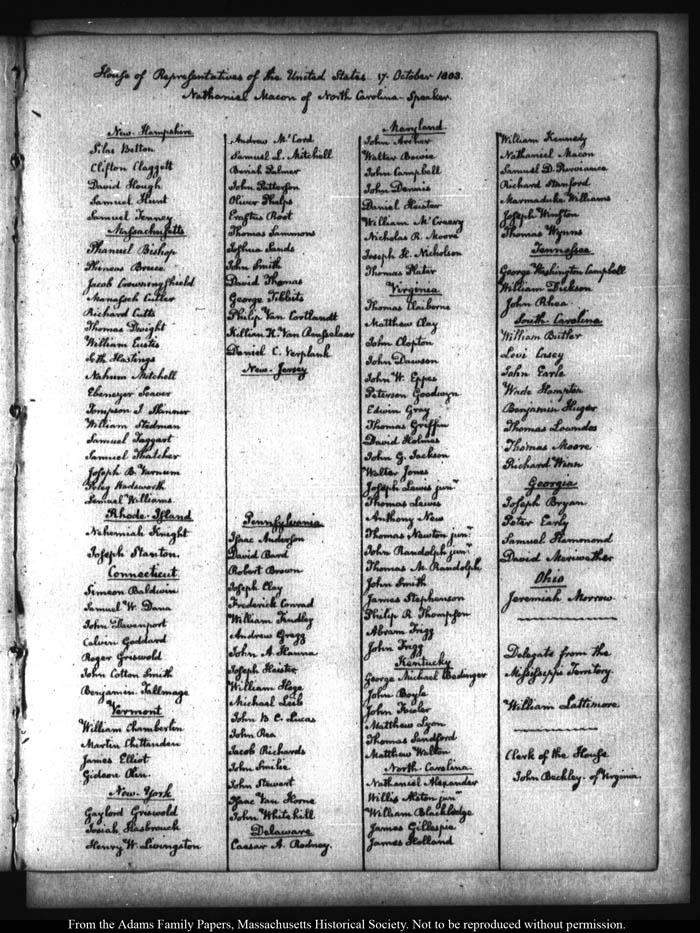 House of Representatives of the United States 17. October 1803.
Nathaniel Macon of North Carolina - Speaker.
New-Hampshire
Silas Betton
Clifton Claggett
David Hough
Samuel Hunt
Samuel Tenney
Massachusetts
Phanuel Bishop
Phineas Bruce
Jacob Crowninshield
Manasseh Cutler
Richard Cutts
Thomas Dwight
William Eustis
Seth Hastings
Nahum Mitchell
Ebenezer Seaver
Tompson J. Skinner
William Stedman
Samuel Taggart
Samuel Thatcher
Joseph B. Varnum
Peleg Wadsworth
Lemuel Williams
Rhode-Island
Nehemiah Knight
Joseph Stanton.
Connecticut
Simeon Baldwin
Samuel W. Dana
John Davenport
Calvin Goddard
Roger Griswold
John Cotton Smith
Benjamin Tallmage
Vermont
William Chamberlin
Martin Chittenden
James Elliot
Gideon Olin
New-York
Gaylord Griswold
Josiah Hasbrouck
Henry W. Livingston
Andrew McCord
Samuel L. Mitchill
Beriah Palmer
John Patterson
Oliver Phelps
Erastus Root
Thomas Sammons
Joshua Sands
John Smith
David Thomas
George Tibbits
Philip Van Cortlandt
Killian K. Van Renssalaer
Daniel C. Verplank
New-Jersey
Pennsylvania
Isaac Anderson
David Bard
Robert Brown
Joseph Clay
Frederick Conrad
William Findley
Andrew Gregg
John A. Hanna
Joseph Heister
William Hoge
Michael Leib
John B. C. Lucas
John Rea
Jacob Richards
John Smilie
John Stewart
Isaac Van Horne
John Whitehill
Delaware
Caesar A. Rodney.
Maryland
John Archer
Walter Bowie
John Campbell
John Dennis
Daniel Heister
William McCreery
Nicholas R. Moore
Joseph H. Nicholson
Thomas Plater
Virginia
Thomas Claiborne
Matthew Clay
John Clopton
John Dawson
John W. Eppes
Peterson Goodwyn
Edwin Gray
Thomas Griffin
David Holmes
John G. Jackson
Walter Jones
Joseph Lewis junr
Thomas Lewis
Anthony New
Thomas Newton junr
John Randolph junr
Thomas M. Randolph
John Smith
James Stephenson
Philip R. Thompson
Abram Trigg
John Trigg
Kentucky
George Michael Bedinger
John Boyle
John Fowler
Matthew Lyon
Thomas Sandford
Matthew Walton
North-Carolina
Nathaniel Alexander
Willis Alston junr
William Blackledge
James Gillespie
James Holland
William Kennedy
Nathaniel Macon
Samuel D. Purviance
Richard Stanford
Marmaduke Williams
Joseph Winston
Thomas Wynns
Tennessee
George Washington Campbell
William Dickson
John Rhea
South-Carolina
William Butler
Levi Casey
John Earle
Wade Hampton
Benjamin Huger
Thomas Lowndes
Thomas Moore
Richard Winn
Georgia
Joseph Bryan
Peter Early
Samuel Hammond
David Meriwether
Ohio
Jeremiah Morrow
Delegate from the
Mississippi Territory
William Lattimore
Clerk of the House
John Beckley. of Virginia.
From the Adams Family Papers, Massachusetts Historical Society. Not to be reproduced without permission.